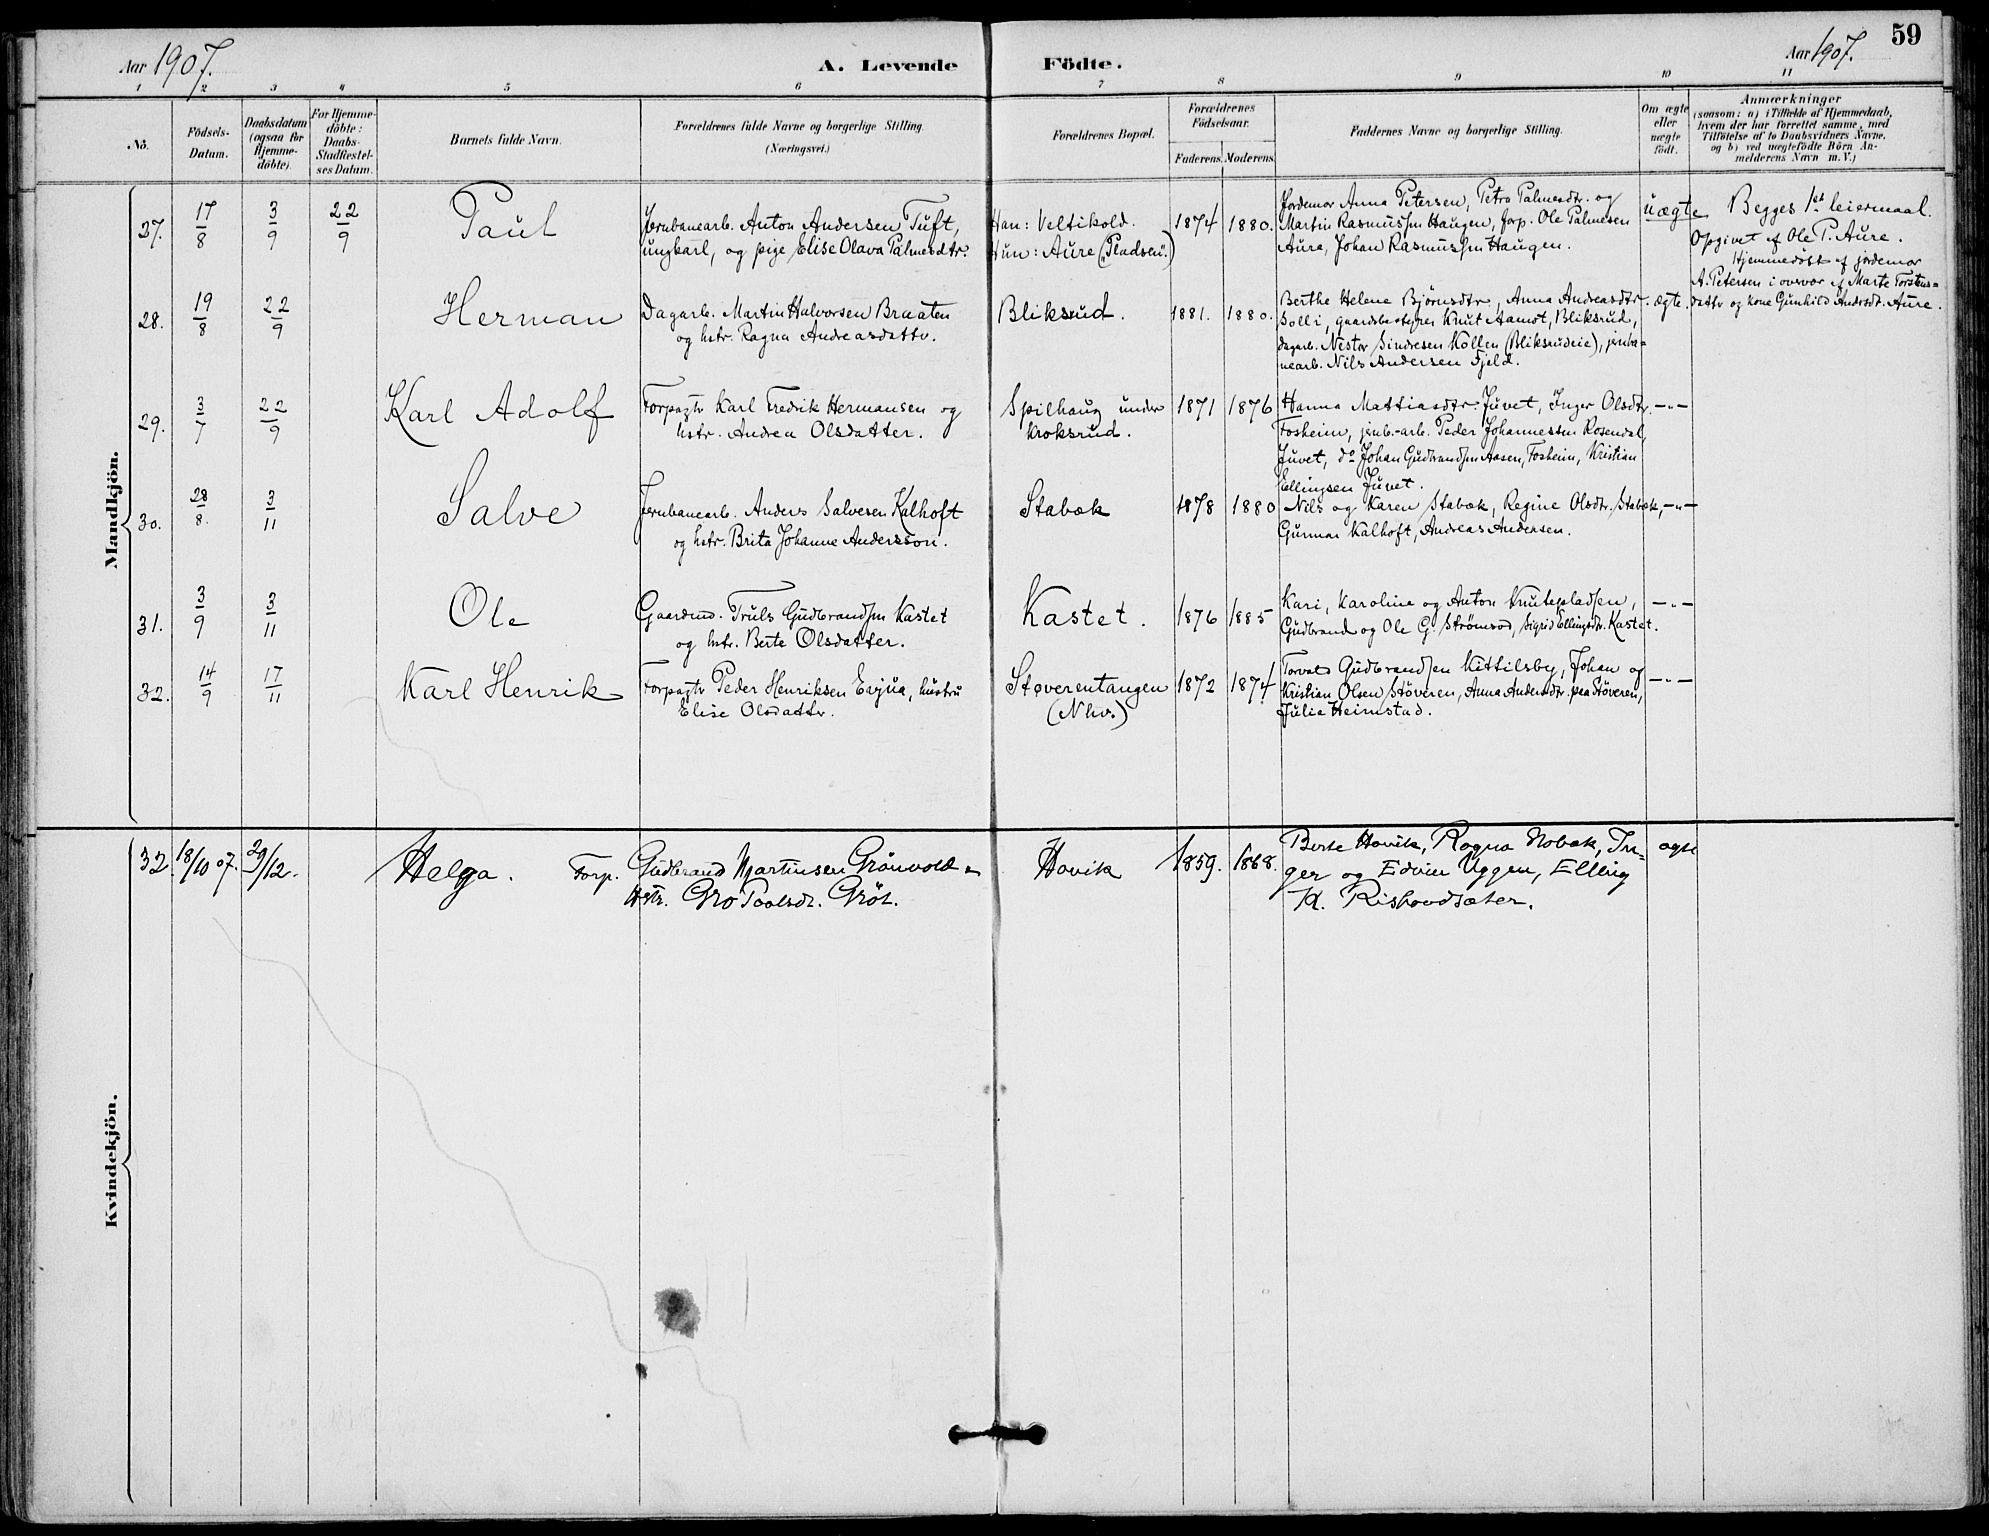 59
Aar 1907.
A. Levende Födte.
Aar 1907.
1 2 3 4 5 6 7 8 9 10 11
No.
Födsels-
Datum.
Daabsdatum
(ogsaa for
Hjemme-
döbte).
For Hjemme-
döbte:
Daabs-
Stadfæstel-
ses Datum.
Barnets fulde Navn.
Forældrenes fulde Navne og borgerlige Stilling.
(Næringsvei.)
Forældrenes Bopæl.
Forældrenes
Födselsaar.
Faderens. Moderens.
Faddernes Navne og borgerlige Stilling.
Om ægte
eller
uægte
födt.
Anmærkninger
(saasom: a) i Tilfælde af Hjemmedaab,
hvem der har forrettet samme, med
Tilföielse af to Daabsvidners Navne,
og b) ved uægtefödte Börn An-
melderens Navn m. V.)
Mandkjön.
27.
17/8
3/9
22/9
Paul
Jernbanearb. Anton Andersen Tuft,
ungkarl, og pige Elise Olava Palmesdtr.
Han: Veltikold.
Hun: Aure (Pladsen.)
1874
1880.
Jordemor Anna Petersen, Petra Palmesdtr. og
Martin Rasmussen Haugen, forp. Ole Palmesen
Aure, Johan Rasmussen Haugen.
uægte
Begges 1ste leiermaal.
Opgivet af Ole P. Aure.
Hjemmedøbt af jordemor
A. Petersen i overvær af Marte Torstens=
datter og kone Gunhild Andersdt. Aure.
28.
19/8
22/9
Herman
Dagarb. Martin Halvorsen Braaten
og hstr. Ragna Andreasdattr.
Bliksrud.
1881.
1880.
Berthe Helene Bjørnsdtr, Anna Andreasdtr.
Solli, gaardsbestyrer Knut Aamot, Bliksrud,
dagarb. Nestor Sindresen Kollen (Bliksrudeie), jernba=
nearb. Nils Andersen Fjeld.
ægte.
29.
3/7
22/9
Karl Adolf
Forpagtr Karl Fredrik Hermansen og
hstr. Andrea Olsdatter.
Spilhaug under
Kroksrud.
1871
1876
Hanna Mattiasdtr. Juvet, Inger Olsdtr.
Fosheim, jernb.-arb. Peder Johannessen Rosendal,
Juvet, do Johan Gudbrandsen Aasen, Fosheim, Kristian
Ellingsen Juvet.
—„—
30.
28/8.
3/11
Salve
Jernbanearb. Anders Salvesen Kalhoft
og hstr. Brita Johanne Andersson.
Stabæk
1878
1880
Nils og Karen Stabæk, Regine Olsdtr. Stabæk,
Gunnar Kalhoft, Andreas Andersen.
—„—
31.
3/9
3/11
Ole
Gaardmd. Truls Gudbrandsen Kastet
og hstr. Berte Olsdatter.
Kastet.
1876
1885
Kari, Karoline og Anton Knutepladsen,
Gudbrand og Ole G. Strømsod, Sigrid Ellingsdtr. Kastet.
—„—
32.
14/9
17/11
Karl Henrik
Forpagtr Peder Henriksen Evjua, hustru
Elise Olsdattr.
Støverentangen
(Nhv.)
1872
1874
Torvald Gudbrandsen Kittilsby, Johan og
Kristian Olsen Støveren, Anna Andersdtr. paa Støveren,
Julie Heimstad.
—„—
Kvindekjön.
32
18/10 07.
29/12.
Helga.
Forp. Gudbrand Martinsen Grönvold &
Hstr. Gro Paalsdr. Gröt.
Hovik
1859.
1868.
Berte Hovik, Ragna Nobæk, In=
ger og Edvin Uggen, Elling
H. Rishovdsæter.
ægte